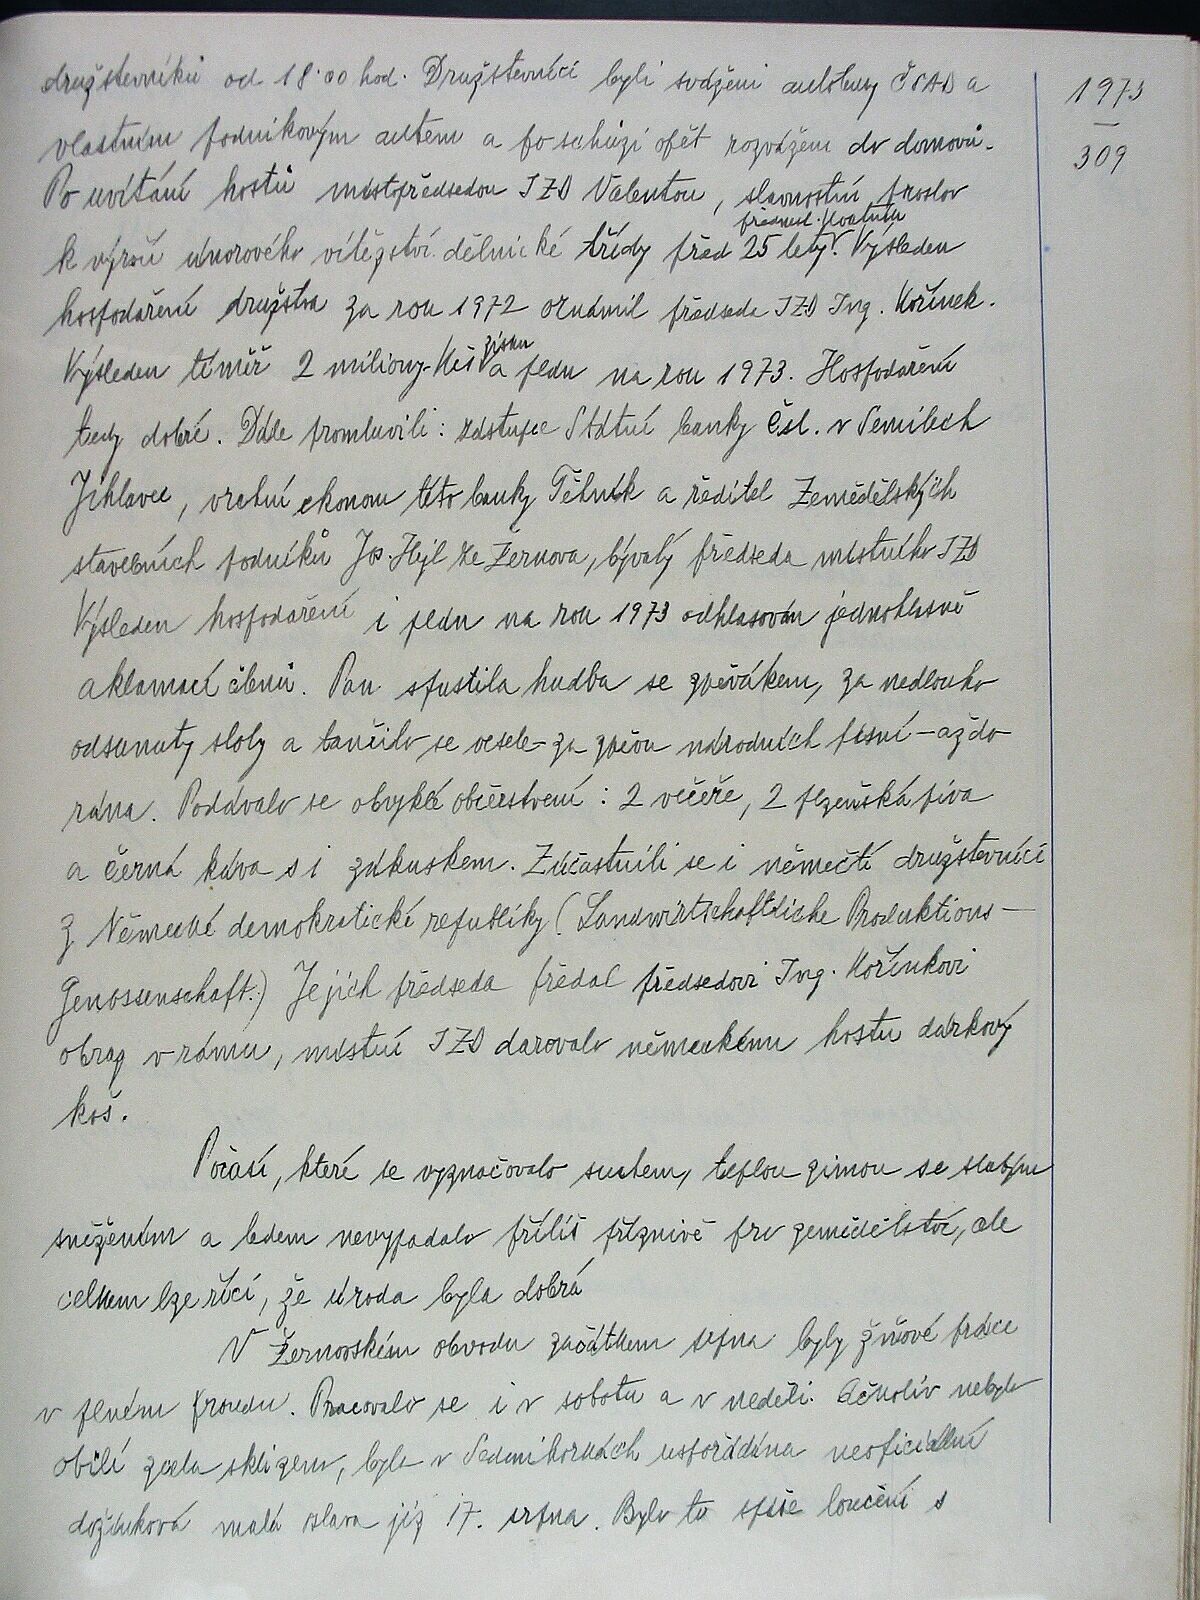 družstevníků od 18·00 hod. Družstevníci byli sváženi autobusy ČSAD a
1973
vlastním podnikovým autem a po schůzi opět rozváženi do domovů.
309
Po uvítání hostů místopředsedou JZD Valentou, slavnostní proslov
přednesl
k výročí únorového vítězství dělnické třídy před 25 lety. Výsledek
hospodaření družstva za rok 1972 oznámil předseda JZD Ing. Kořínek.
zisku
Výsledek téměř 2 miliony Kčs a plán na rok 1973. Hospodaření
tedy dobré. Dále promluvili: zástupce Státní banky Čsl. v Semilech
Jihlavec, vrchní ekonom této banky Těhník a ředitel Zemědělských
stavebních podniků Jos. Hejl ze Žernova, bývalý předseda místního JZD
Výsledek hospodaření i plán na rok 1973 odhlasován jednohlasně
aklamací členů. Pak spustila hudba se zpěvákem, za nedlouho
odsunuty stoly a tančilo se vesele za zpěvu národních písní – až do
rána. Podávalo se obvyklé občerstvení: 2 večeře, 2 plzeňská piva
a černá káva s i zákuskem. Zúčastnili se i němečtí družstevníci
z Německé demokratické republiky (Landwirtschaftliche Produktions–
Genossenschaft.) Jejich předseda předal předsedovi Ing. Kořínkovi
obraz v rámu, místní JZD darovalo německému hostu dárkový
koš.
Počasí, které se vyznačovalo suchem, teplou zimou se slabým
sněžením a ledem nevypadalo příliš příznivě pro zemědělství, ale
celkem lze říci, že úroda byla dobrá
V Žernovském obvodu začátkem srpna byly žňové práce
v plném proudu. Pracovalo se i v sobotu a v neděli. Ačkoliv nebylo
obilí zcela sklizeno, byla v Sedmihorkách uspořádána neoficiální
dožínková malá oslava již 17. srpna. Bylo to spíše loučení s